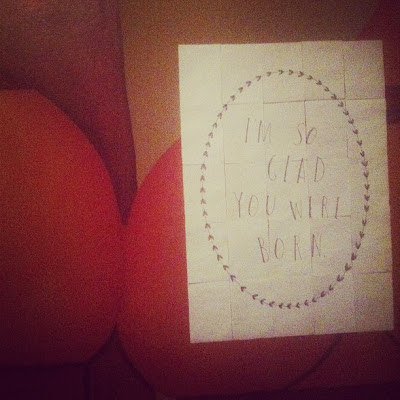 I'M SO
GLAD
YOU WERE
BORN.